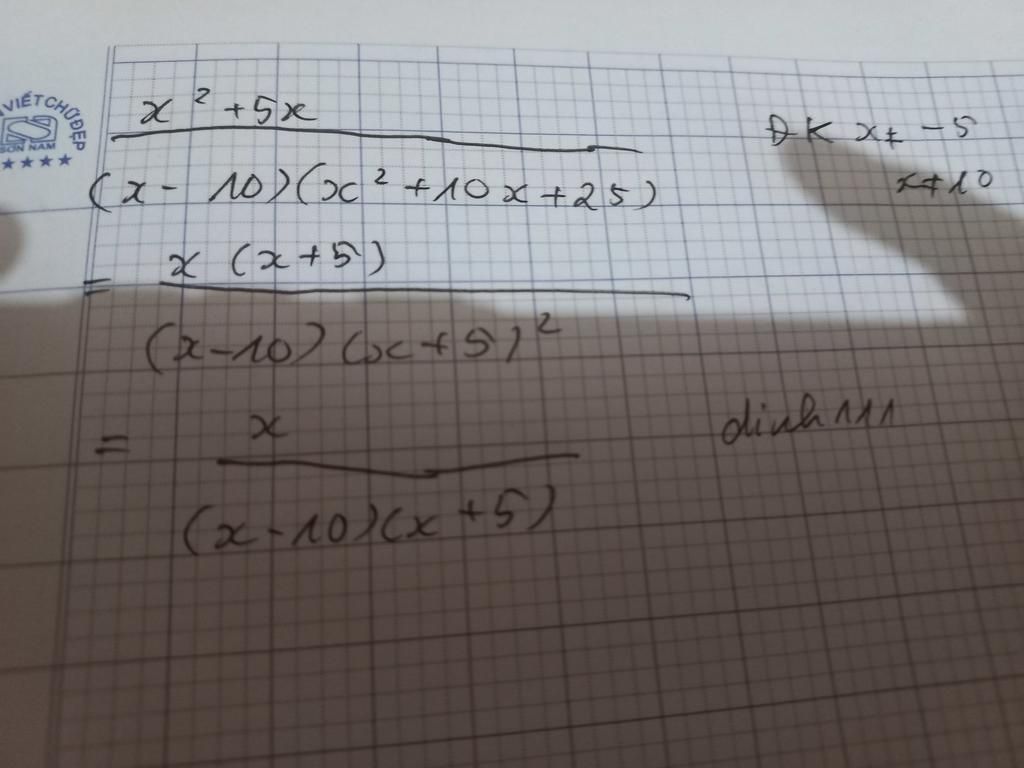 VIẾT CHỮ ĐẸP
SƠN NAM
x² + 5x
(x - 10)(x² + 10x + 25)
ĐK x ≠ -5
x ≠ 10
= x (x + 5)
(x - 10)(x + 5)²
= x
(x - 10)(x + 5)
dinh 111